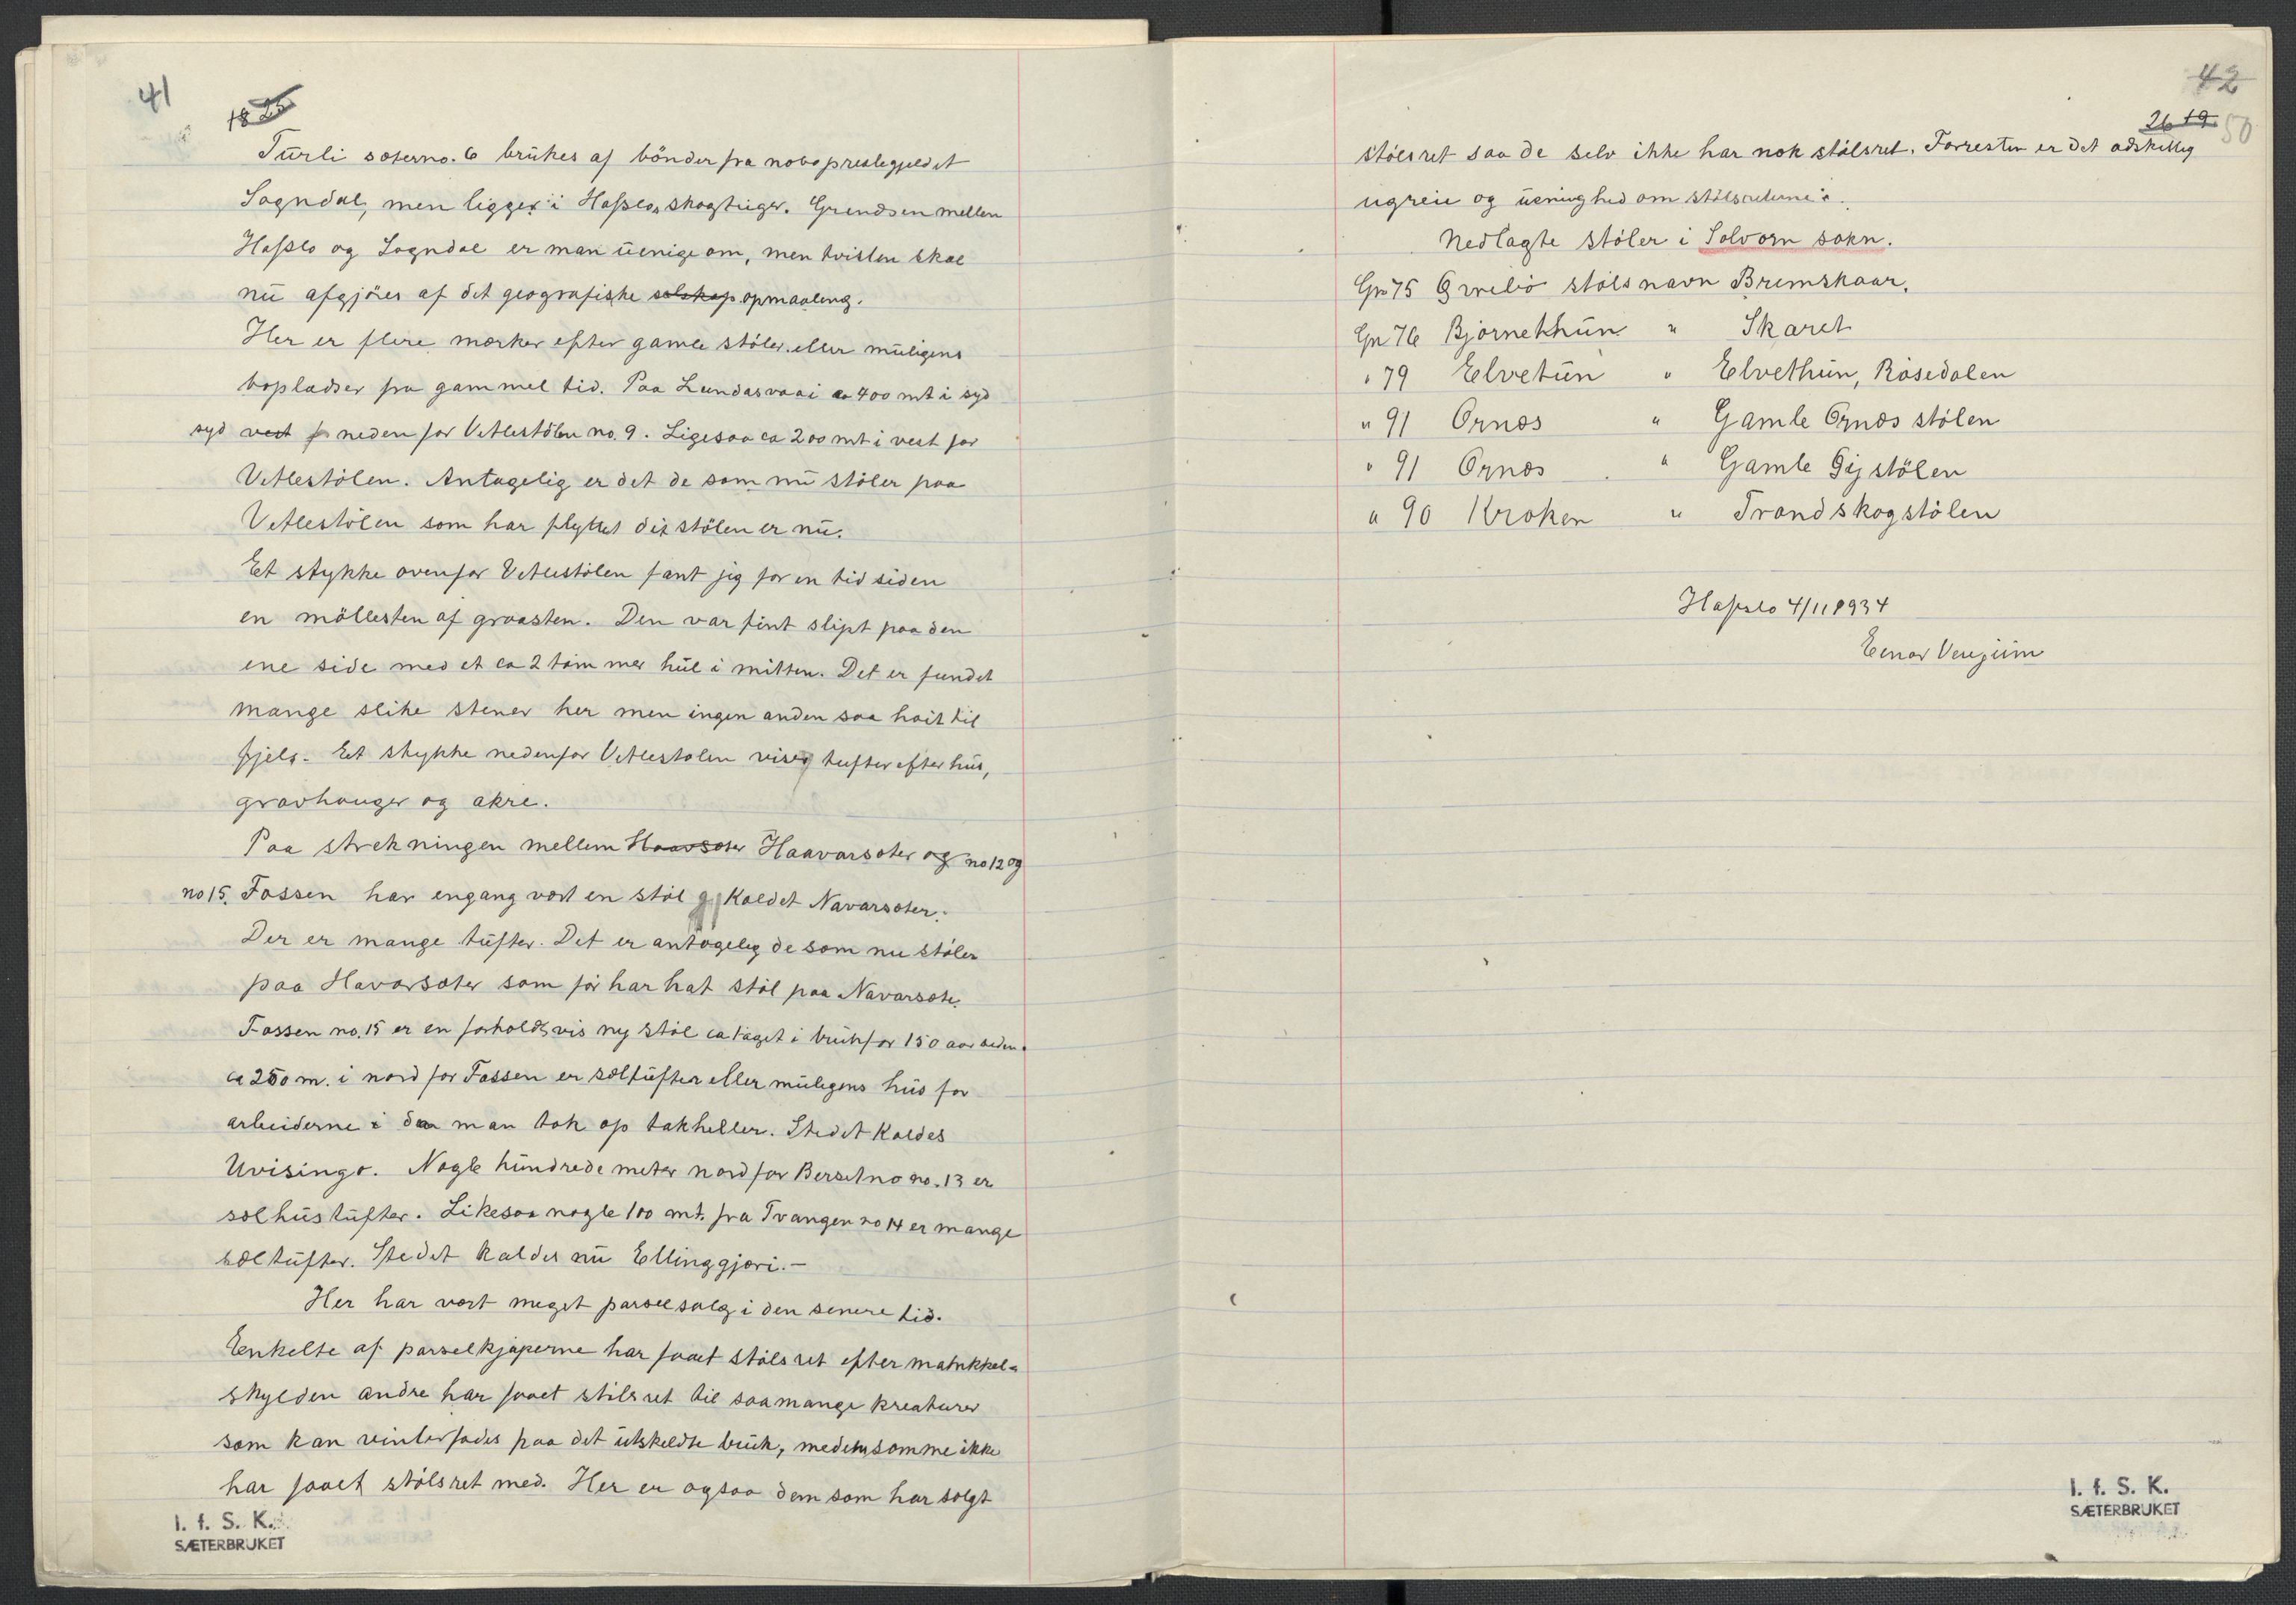 41
18 25
Turli sæter no. 6 brukes af bönder fra nabo prestegjeldet
Sogndal, men ligger i Haslo, skogteiger. Grendsen mellem
Hafslo og Sogndal er man uenige om, men tvisten skal
nu afgjöres af det geografiske selskap opmaaling.
Her er flere mærker efter gamle stöler eller muligens
bopladser fra gammel tid. Paa Lundasvaai ca 400 mt i syd
syd vest f neden for Vetlestölen no. 9. Ligesaa ca 200 mt i vest for
Vetlestölen. Antagelig er det de som nu stöler paa
Vetlestölen som har flyttet dit stölen er nu.
Et stykke ovenfor Vetlestölen fant jig for en tid siden
en möllesten af graasten. Den var fint slipt paa den
ene side med et ca 2 tommer hul i mitten. Det er fundet
mange slike stener her men ingen anden saa höit til
fjels. Et stykke nedenfor Vetlestolen viser tufter efter hus,
gravhauger og akre.
Paa strekningen mellem Haavsæter Haavarsæter og no 12 og
no 15. Fossen har engang vært en stöl g kaldet Navarsæter.
Der er mange tufter. Det er antagelig de som nu stöler
paa Havarsæter som för har hat stöl paa Navarsæte.
Fossen no. 15 er en forholdsvis ny stöl ca taget i bruk for 150 aar siden.
ca 250 m. i nord for Fossen er sæltufter eller muligens hus for
arbeiderne i da man tok op takheller. Stedet kaldes
Uvisingo. Nogle hundrede meter nord for Bersetno no. 13 er
selhustufter. Likesaa nogle 100 mt. fra Tvangen no 14 er mange
sæltufter. Stedet kaldes nu Ellinggjæri.-
Her har vært meget parselsalg i den senere tid.
Eenkelte af parselkjøperne har faaet stølsret efter matrikkel-
skylden andre har faaet stølsret til saa mange kreaturer
som kan vinterfødes paa det utskeldte bruk, medens somme ikke
har faaet stølsret med. Her er ogsaa dem som har solgt
I. f. S. K.
SÆTERBRUKET
42
26 19.
50
stølsret saa de selv ikke har nok stølsret. Forresten er det adskellig
ugreie og uenighed om stölsreterne.
Nedlagte stöler i Solvorn sokn.
Gn 75 Qvrelio stöls navn Bremskaar.
Gn 76 Bjørnethun " Skaret
" 79 Elvetun " Elvethun, Rosedalen
" 91 Ornæs " Gamle Ornæs stölen
" 91 Ornæs " Gamle Gijstölen
" 90 Kroken " Trandskogstölen
Hafslo 4/11 1934
Einar Venjum
I. f. S. K.
SÆTERBRUKET